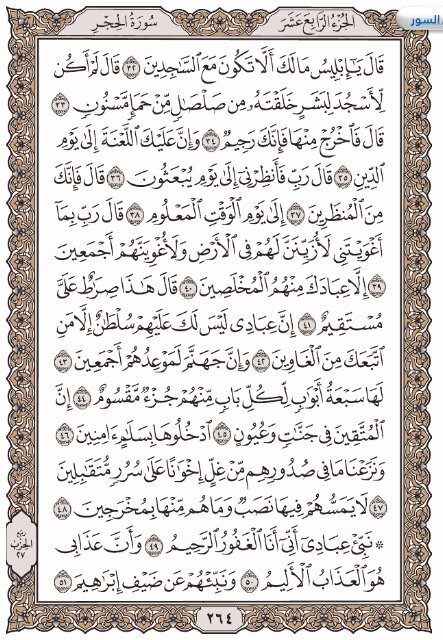 السور
الجزء الرابع عشر
سورة الحجر
قَالَ يَٰٓإِبۡلِيسُ مَا لَكَ أَلَّا تَكُونَ مَعَ ٱلسَّٰجِدِينَ ٣٢ قَالَ لَمۡ أَكُن
لِّأَسۡجُدَ لِبَشَرٍ خَلَقۡتَهُۥ مِن صَلۡصَٰلٖ مِّنۡ حَمَإٖ مَّسۡنُونٖ ٣٣
قَالَ فَٱخۡرُجۡ مِنۡهَا فَإِنَّكَ رَجِيمٞ ٣٤ وَإِنَّ عَلَيۡكَ ٱللَّعۡنَةَ إِلَىٰ يَوۡمِ
ٱلدِّينِ ٣٥ قَالَ رَبِّ فَأَنظِرۡنِيٓ إِلَىٰ يَوۡمِ يُبۡعَثُونَ ٣٦ قَالَ فَإِنَّكَ
مِنَ ٱلۡمُنظَرِينَ ٣٧ إِلَىٰ يَوۡمِ ٱلۡوَقۡتِ ٱلۡمَعۡلُومِ ٣٨ قَالَ رَبِّ بِمَآ
أَغۡوَيۡتَنِي لَأُزَيِّنَنَّ لَهُمۡ فِي ٱلۡأَرۡضِ وَلَأُغۡوِيَنَّهُمۡ أَجۡمَعِينَ
٣٩ إِلَّا عِبَادَكَ مِنۡهُمُ ٱلۡمُخۡلَصِينَ ٤٠ قَالَ هَٰذَا صِرَٰطٌ عَلَيَّ
مُسۡتَقِيمٌ ٤١ إِنَّ عِبَادِي لَيۡسَ لَكَ عَلَيۡهِمۡ سُلۡطَٰنٌ إِلَّا مَنِ
ٱتَّبَعَكَ مِنَ ٱلۡغَاوِينَ ٤٢ وَإِنَّ جَهَنَّمَ لَمَوۡعِدُهُمۡ أَجۡمَعِينَ ٤٣
لَهَا سَبۡعَةُ أَبۡوَٰبٖ لِّكُلِّ بَابٖ مِّنۡهُمۡ جُزۡءٞ مَّقۡسُومٌ ٤٤ إِنَّ
ٱلۡمُتَّقِينَ فِي جَنَّٰتٖ وَعُيُونٍ ٤٥ ٱدۡخُلُوهَا بِسَلَٰمٍ ءَامِنِينَ ٤٦
وَنَزَعۡنَا مَا فِي صُدُورِهِم مِّنۡ غِلٍّ إِخۡوَٰنًا عَلَىٰ سُرُرٖ مُّتَقَٰبِلِينَ
٤٧ لَا يَمَسُّهُمۡ فِيهَا نَصَبٞ وَمَا هُم مِّنۡهَا بِمُخۡرَجِينَ ٤٨
۞ نَبِّئۡ عِبَادِيٓ أَنِّيٓ أَنَا ٱلۡغَفُورُ ٱلرَّحِيمُ ٤٩ وَأَنَّ عَذَابِي
هُوَ ٱلۡعَذَابُ ٱلۡأَلِيمُ ٥٠ وَنَبِّئۡهُمۡ عَن ضَيۡفِ إِبۡرَٰهِيمَ ٥١
ربع
الحزب
٢٧
٢٦٤